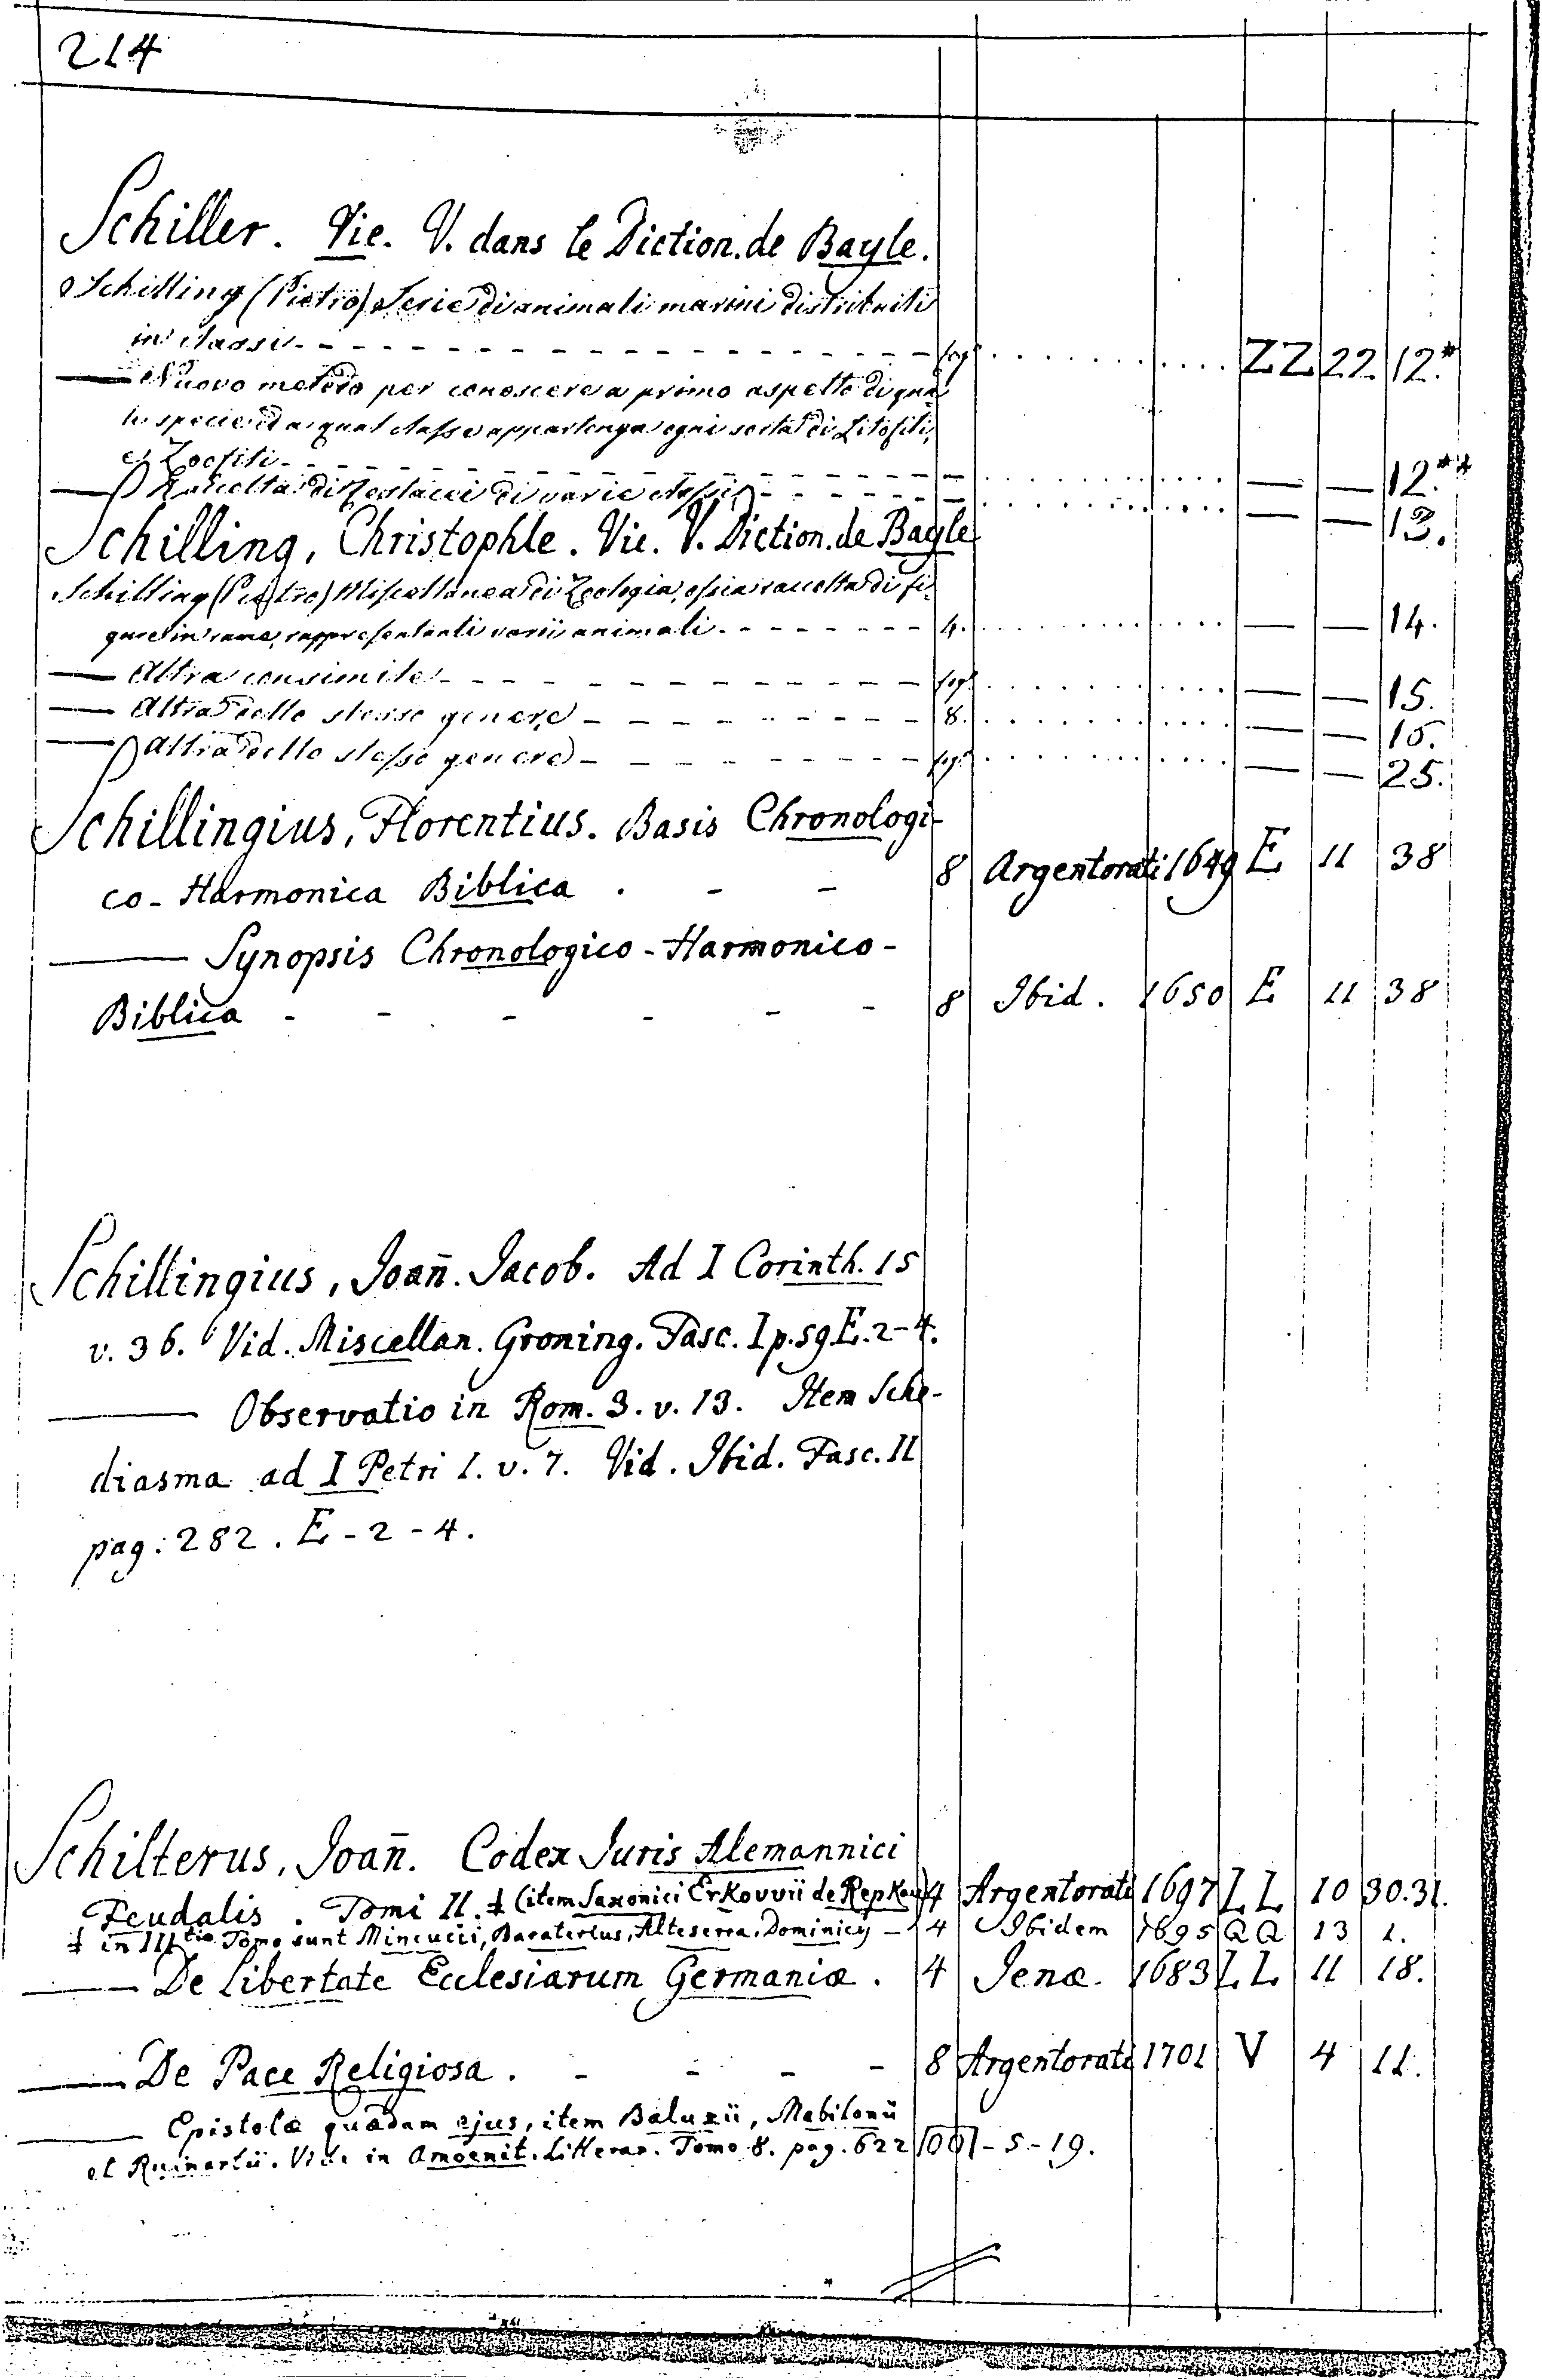 214
Schiller. Vie. V. dans le Diction. de Bayle.
Schilling (Pietro) Serie di animali marini distribuiti
in classi - - - - - - - - - - - - - - - fog.° . . . . . . . . . . ZZ 22 12.*
—— Nuovo metodo per conoscere a primo aspetto di qua
le specie ed a qual classe appartenga ogni sorta di Litofiti,
e Zoofiti - - - - - - - - - - - - - - - — . . . . . . . . . . — — 12.**
—— Raccolta di Testacei di varie classi - - - - - - — . . . . . . . . . . — — 13.
Schilling, Christophle. Vie. V. Diction. de Bayle
Schilling (Pietro) Miscellanea di Zoologia, ossia raccolta di fi-
gure in rame, rappresentanti varii animali. - - - - - - - 4. . . . . . . . . . . — — 14.
—— Altra consimile - - - - - - - - - - - - fog.° . . . . . . . . . . — — 15.
—— Altra dello stesso genere - - - - - - - - - 8. . . . . . . . . . . — — 16.
—— Altra dello stesso genere - - - - - - - - - fog.° . . . . . . . . . . — — 25.
Schillingius, Florentius. Basis Chronologi-
co-Harmonica Biblica . - - 8 Argentorati 1649 E 11 38
—— Synopsis Chronologico-Harmonico-
Biblica - - - - - - 8 Ibid. 1650 E 11 38
Schillingius, Joan̄. Jacob. Ad I Corinth. 15
v. 36. Vid. Miscellan. Groning. Fasc. I p. 59. E. 2-4.
—— Observatio in Rom. 3. v. 13. Item Sche-
diasma ad I Petri 1. v. 7. Vid. Ibid. Fasc. II
pag: 282. E - 2 - 4.
Schilterus, Joan̄. Codex Juris Alemannici
Feudalis. Tomi II. ‡ (item Saxonici Erkovvii de Repkau) 4 Argentorati 1697 LL 10 30.31.
‡ in III.tio Tomo sunt Mincucii, Baraterius, Alteserra, Dominicy - 4 Ibidem 1695 QQ 13 1.
—— De Libertate Ecclesiarum Germaniæ. 4 Jenæ. 1683 LL 11 18.
—— De Pace Religiosa. - - - - 8 Argentorati 1701 V 4 11.
—— Epistolæ quædam ejus, item Baluzii, Mabilonii
et Ruinartii. Vide in Amoenit. Litterar. Tomo 8. pag. 622 OO - 5 - 19.